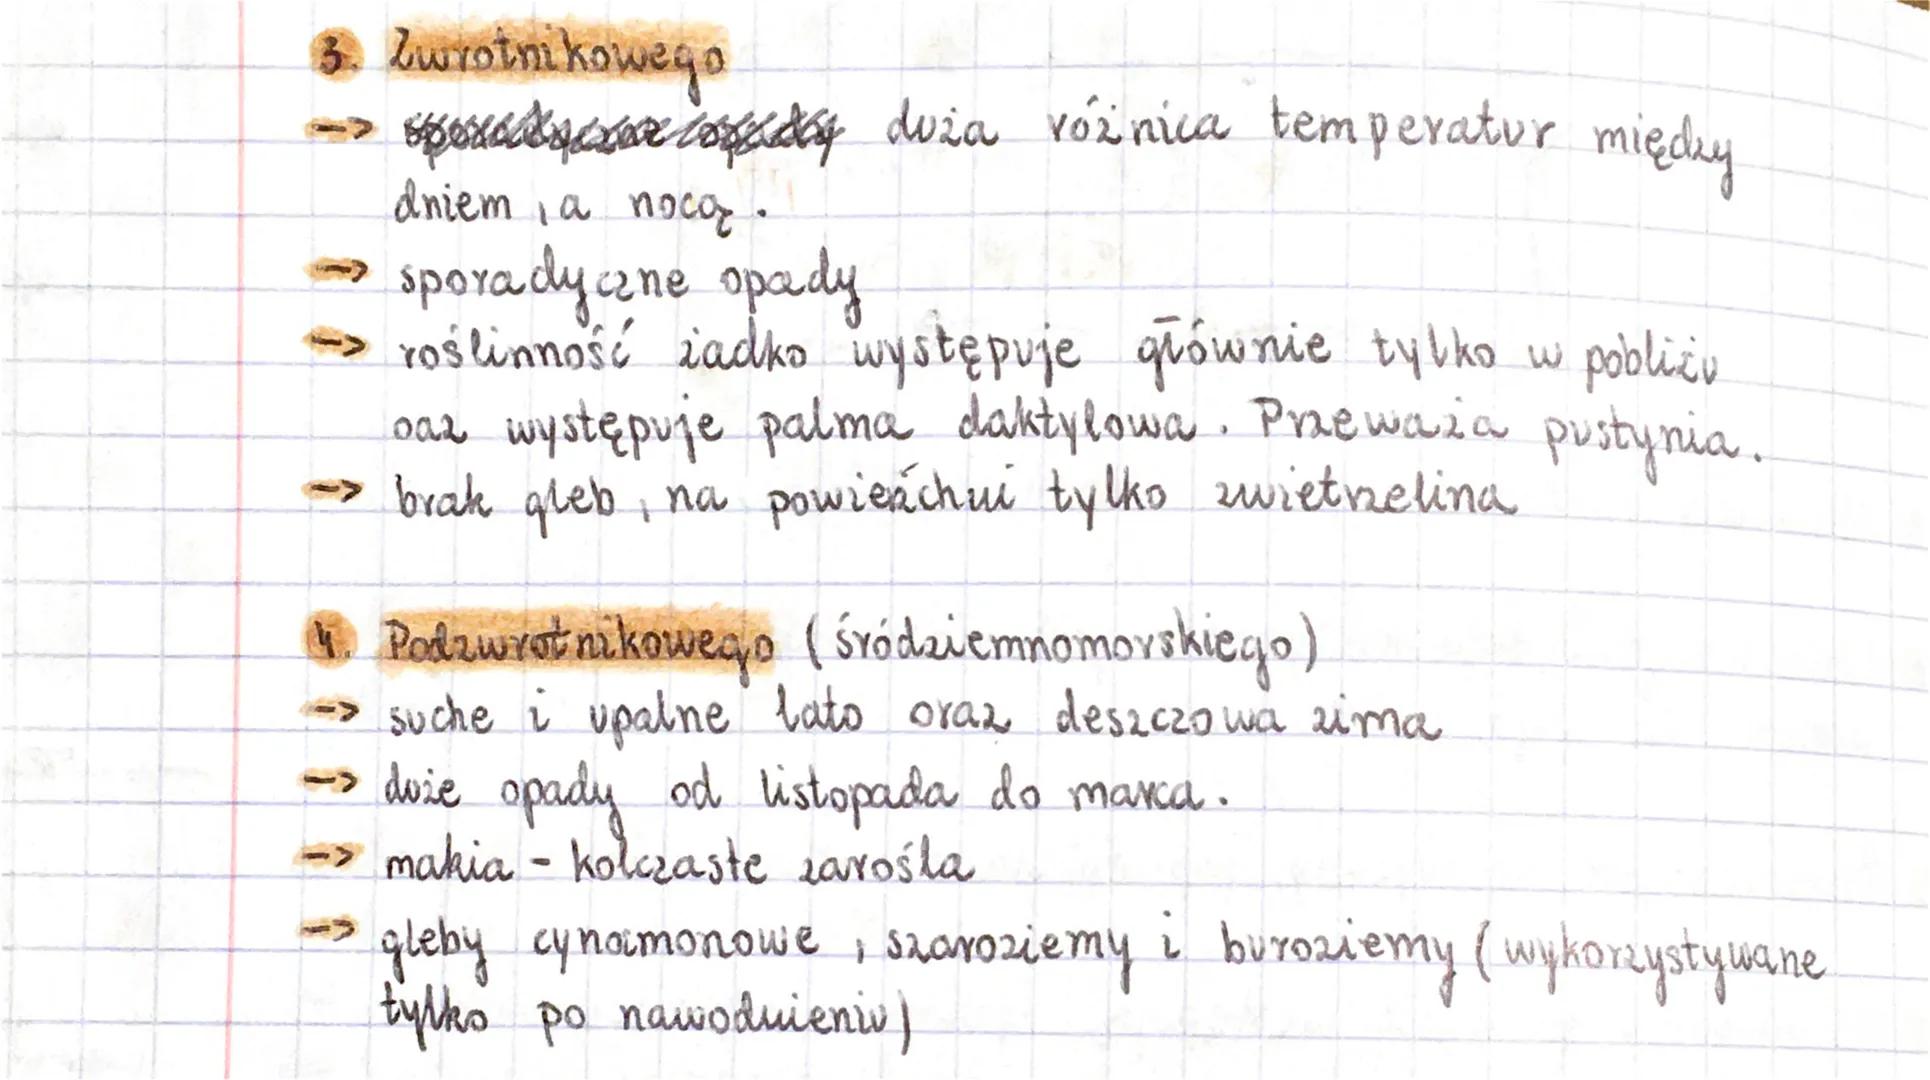 3. Zwrotnikowego
-> duża różnica temperatur między
dniem, a nocą.
-> sporadyczne opady
-> roślinność żadko występuje głównie tylko w pobliżu
oaz występuje palma daktylowa. Przeważa pustynia.
-> brak gleb, na powieżchni tylko zwietrzelina
4. Podzwrotnikowego (śródziemnomorskiego)
-> suche i upalne lato oraz deszczowa zima
-> duże opady od listopada do marca.
-> makia - kolczaste zarośla
-> gleby cynamonowe, szaroziemy i buroziemy (wykorzystywane
tylko po nawodnieniu)